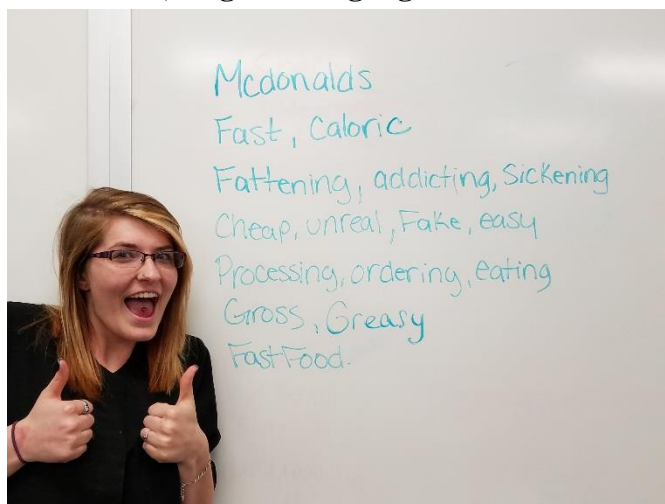 Mcdonalds
Fast, Caloric
Fattening, addicting, Sickening
Cheap, unreal, Fake, easy
Processing, ordering, eating
Gross, Greasy
Fast Food.